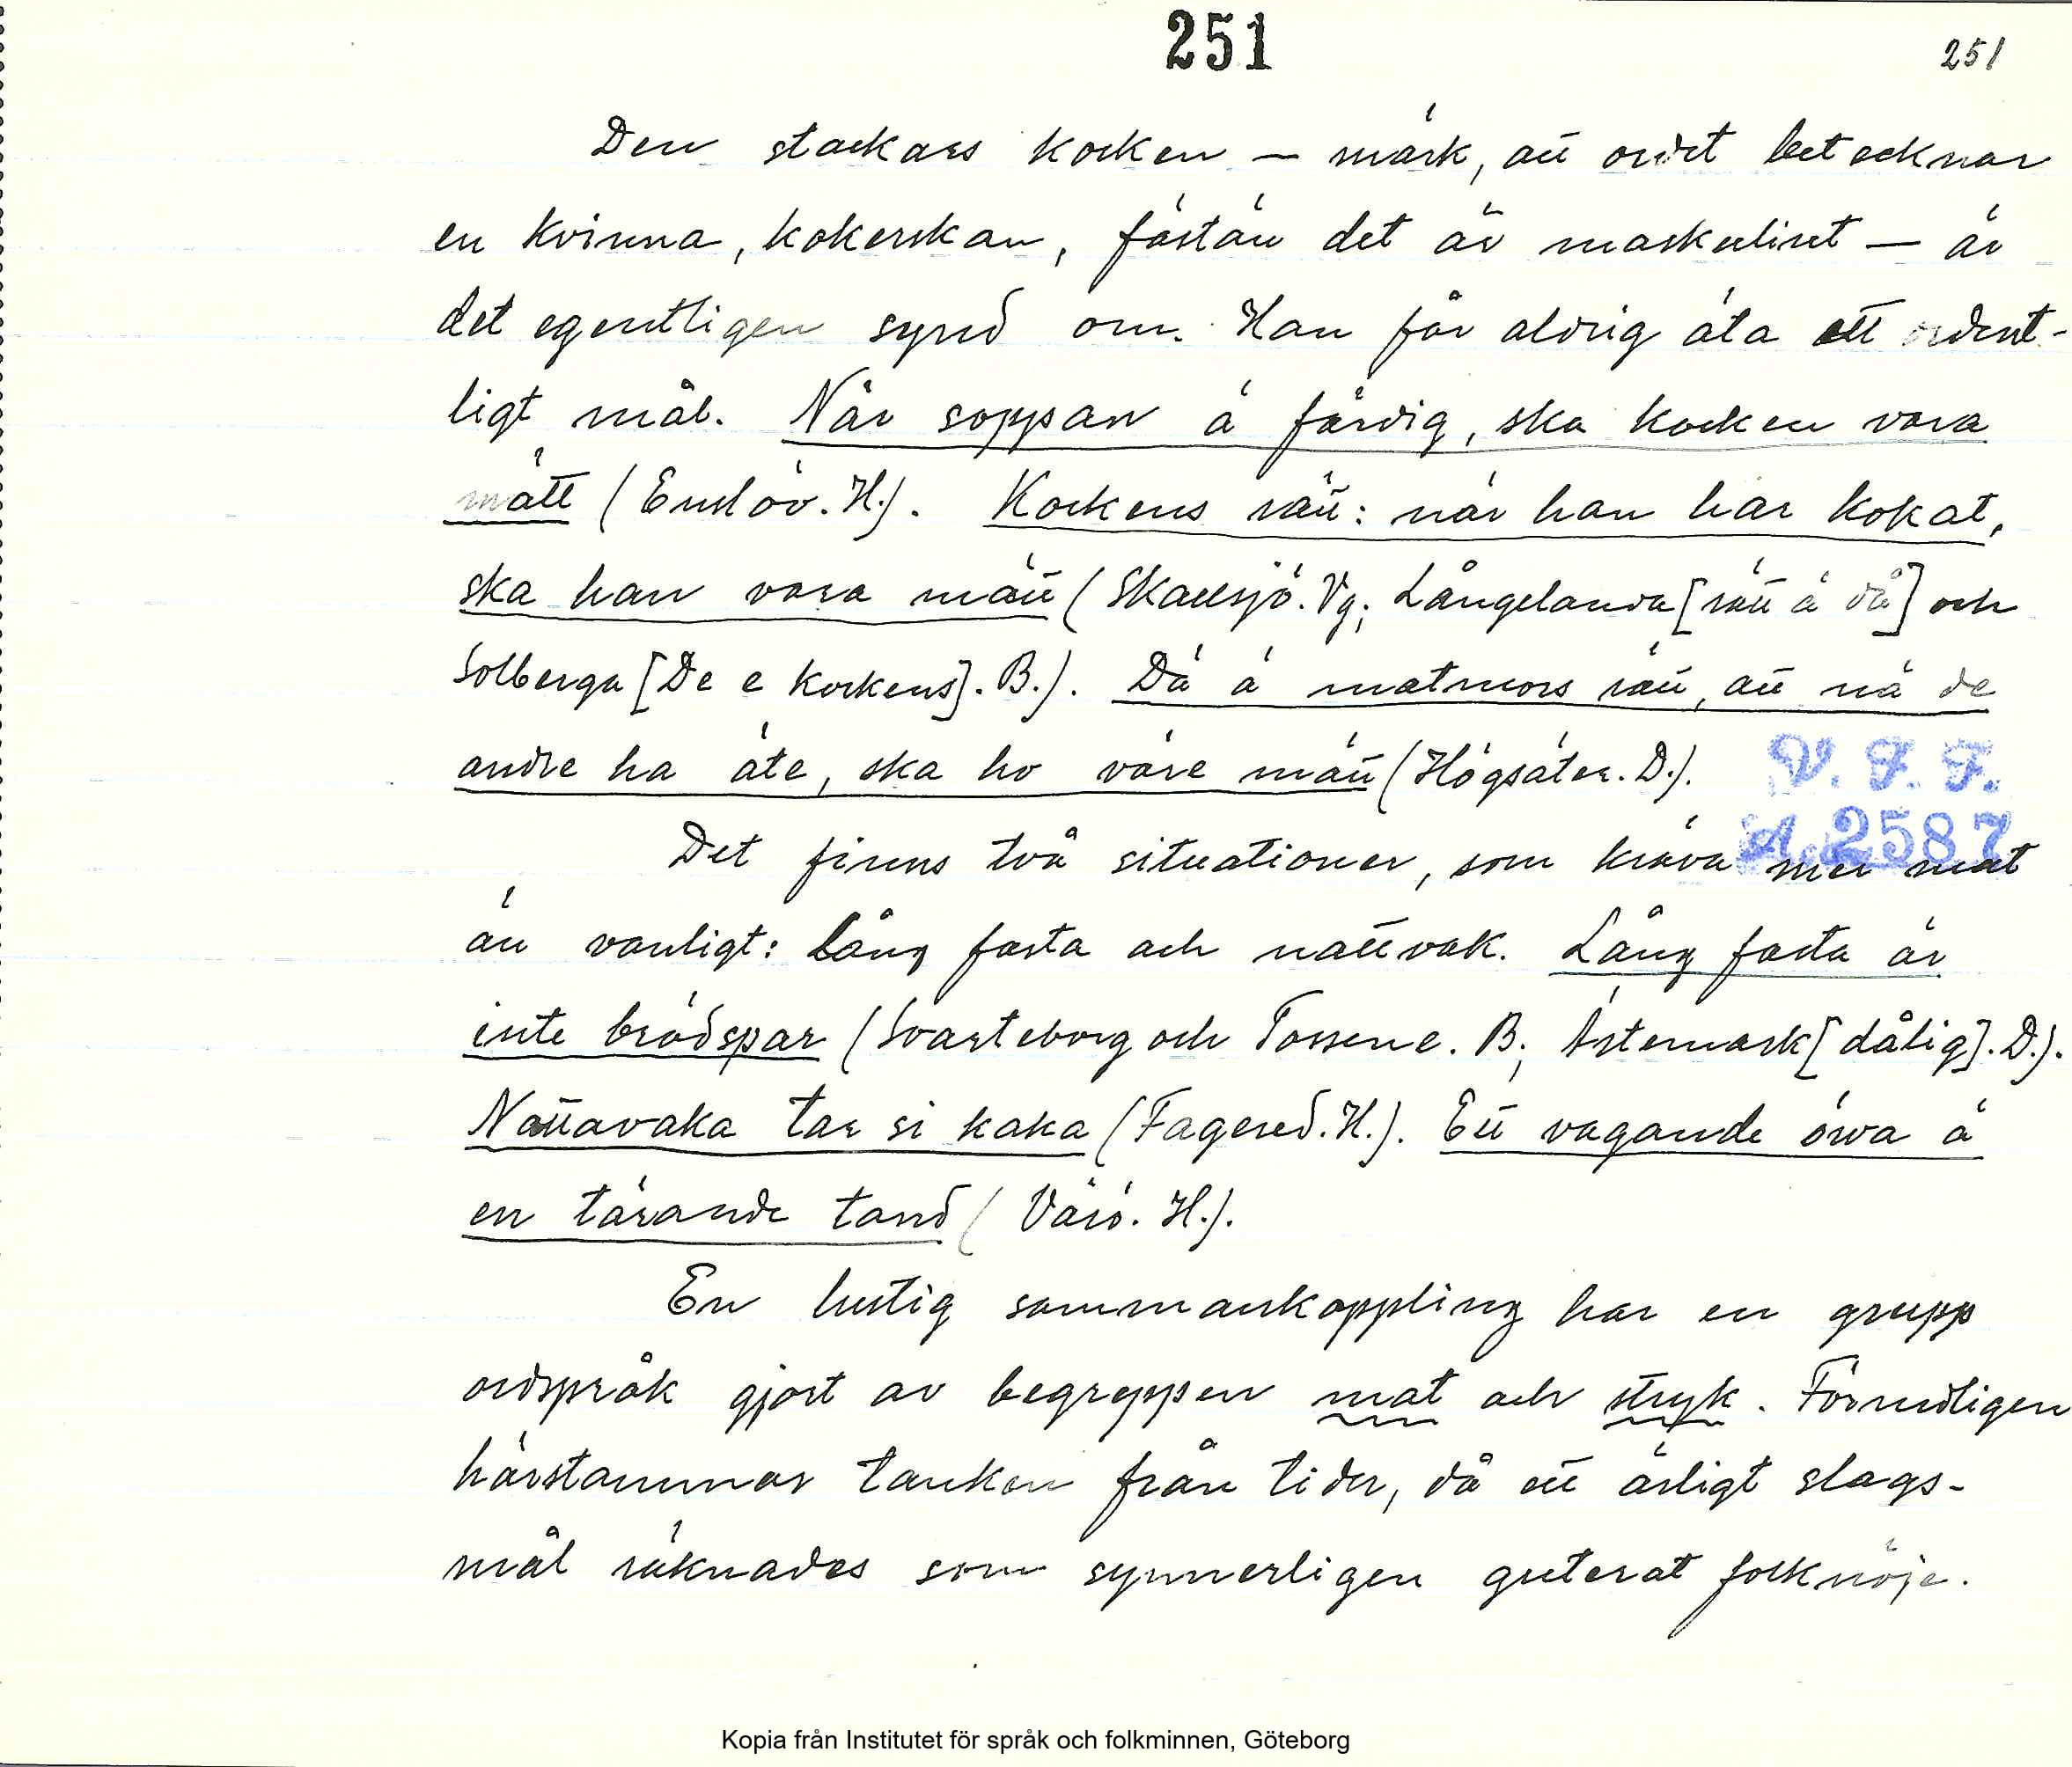 251
251
Den stackars kocken – märk, att ordet betecknar
en kvinna, kokerskan, fästän det är maskulint – är
det egentligen synd om. Han får aldrig äta ett ordent-
ligt mål. När soppan ä färdig, ska kocken vara
mätt (Enslöv. H.). Kockens rätt: när han har kokat,
ska han vara mätt (Skallsjö. Vg; Långelanda [rätt ä då] och
Solberga [De e kockens]. B.). Dä ä matmors rätt, att nä de
andre ha äte, ska ho väre mätt (Högsäter. D.).
V. F. F.
A. 2587
Det finns två situationer, som kräva mer mat
än vanligt: Lång fasta och nattvak. Lång fasta är
inte brödspar (Svarteborg och Tossene. B; Ärtemark [dålig]. D.).
Nattavaka tar si kaka (Fagered. H.). Ett vagande öwa ä
en tärande tand (Värö. H.).
En lustig sammankoppling har en grupp
ordspråk gjort av begreppen mat och stryk. Förmodligen
härstammar tanken från tider, då ett ärligt slags-
mål räknades som synnerligen guterat folknöje.
Kopia från Institutet för språk och folkminnen, Göteborg